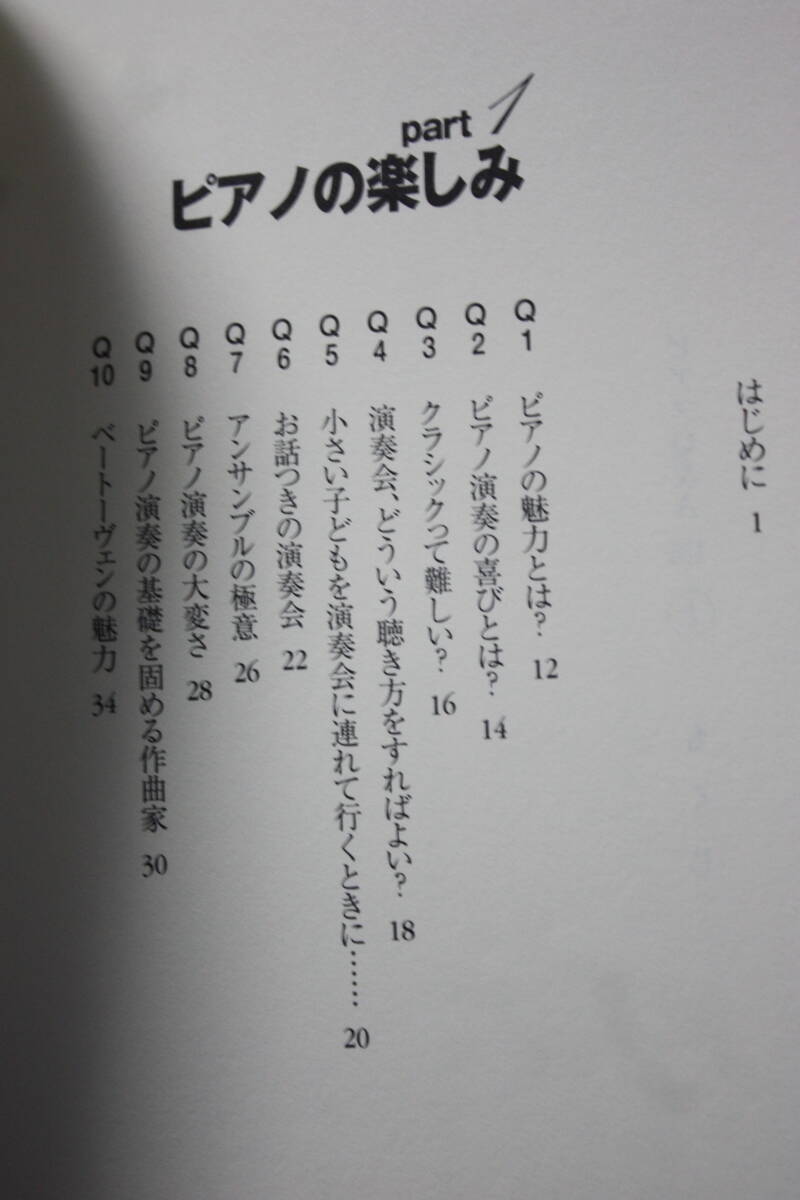 はじめに 1
part 1
ピアノの楽しみ
Q1 ピアノの魅力とは? 12
Q2 ピアノ演奏の喜びとは? 14
Q3 クラシックって難しい? 16
Q4 演奏会、どういう聴き方をすればよい? 18
Q5 小さい子どもを演奏会に連れて行くときに…… 20
Q6 お話つきの演奏会 22
Q7 アンサンブルの極意 26
Q8 ピアノ演奏の大変さ 28
Q9 ピアノ演奏の基礎を固める作曲家 30
Q10 ベートーヴェンの魅力 34